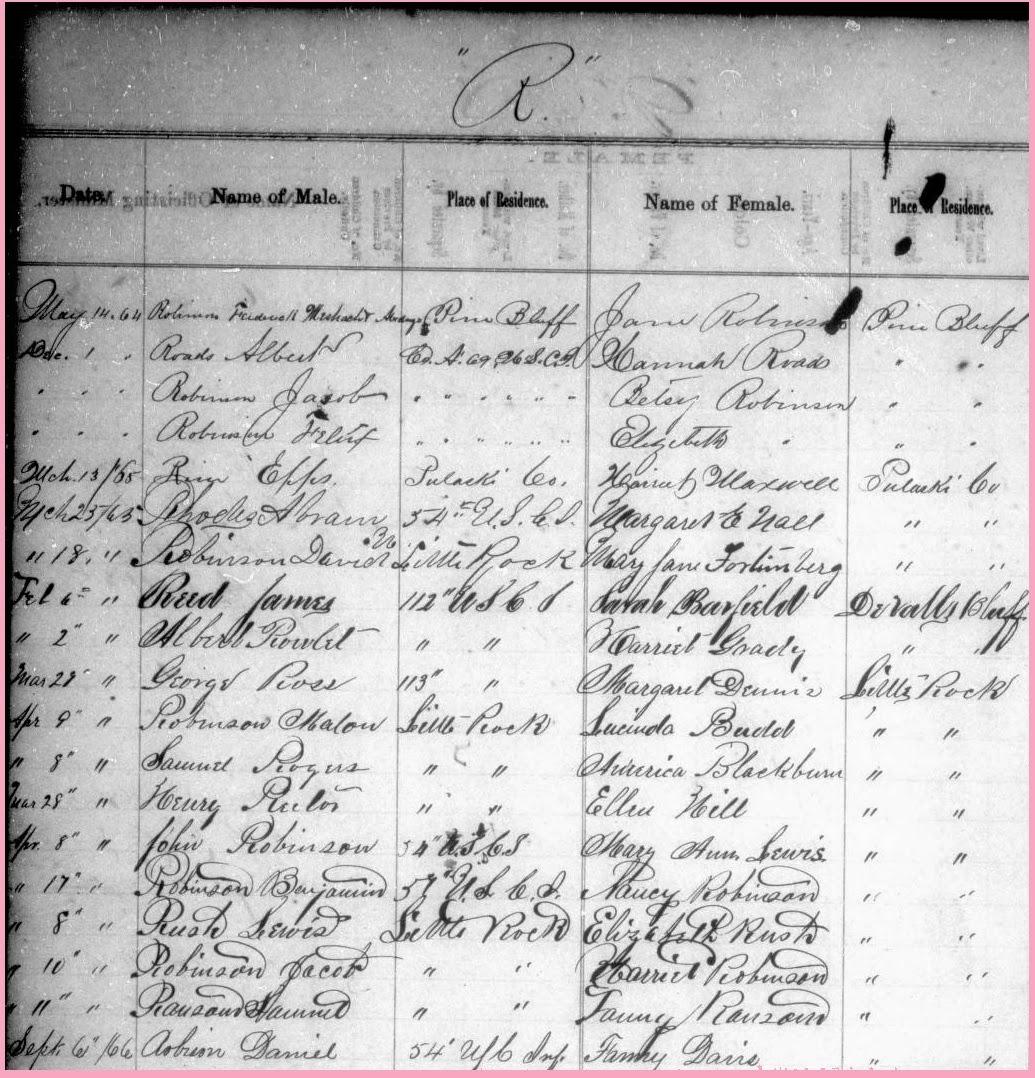 "R."
Date. Name of Male. Place of Residence. Name of Female. Place of Residence.
May 14. 64 Robinson Frederick Pine Bluff Jane Robinson Pine Bluff
Dec. 1 " Roads Albert Co. A. 69, U.S.C.I. Hannah Roads " "
" " " Robinson Jacob " " " " " " Betsy Robinson " "
" " " Robinson Felix " " " " " " Elizabeth " " "
Mch. 13/65 Epps Pulaski Co. Harriet Maxwell Pulaski Co
Mch 25/65 Rhodes Abram 54th U.S.C.I. Margaret E Nall " "
" 18. " Robinson David Little Rock Mary Jane " "
Feb 6" " Reed James 112" U S C I Sarah Barfield Devalls Bluff
" 2" " Albert Rowlet " " Harriet Grady " "
Mar 29" " George Ross 113" " Margaret Dennis Little Rock
Apr 9" " Robinson Malon Little Rock Lucinda Budd " "
" 8" " Samuel Rogers " " America Blackburn " "
Mar 28" " Henry " " Ellen Hill " "
Apr. 8" " John Robinson 54" U S C I Mary Ann Lewis " "
" 17" " Robinson Benjamin 57" U.S.C.I. Nancy Robinson " "
" 8" " Rusk Lewis Little Rock Elizabeth Rusk " "
" 10" " Robinson Jacob " " Harriet Robinson " "
" 11" " Ransom Samuel " " Fanny Ransom " "
Sept. 6"/66 Daniel 54" U S C Inf. Fanny Davis " "